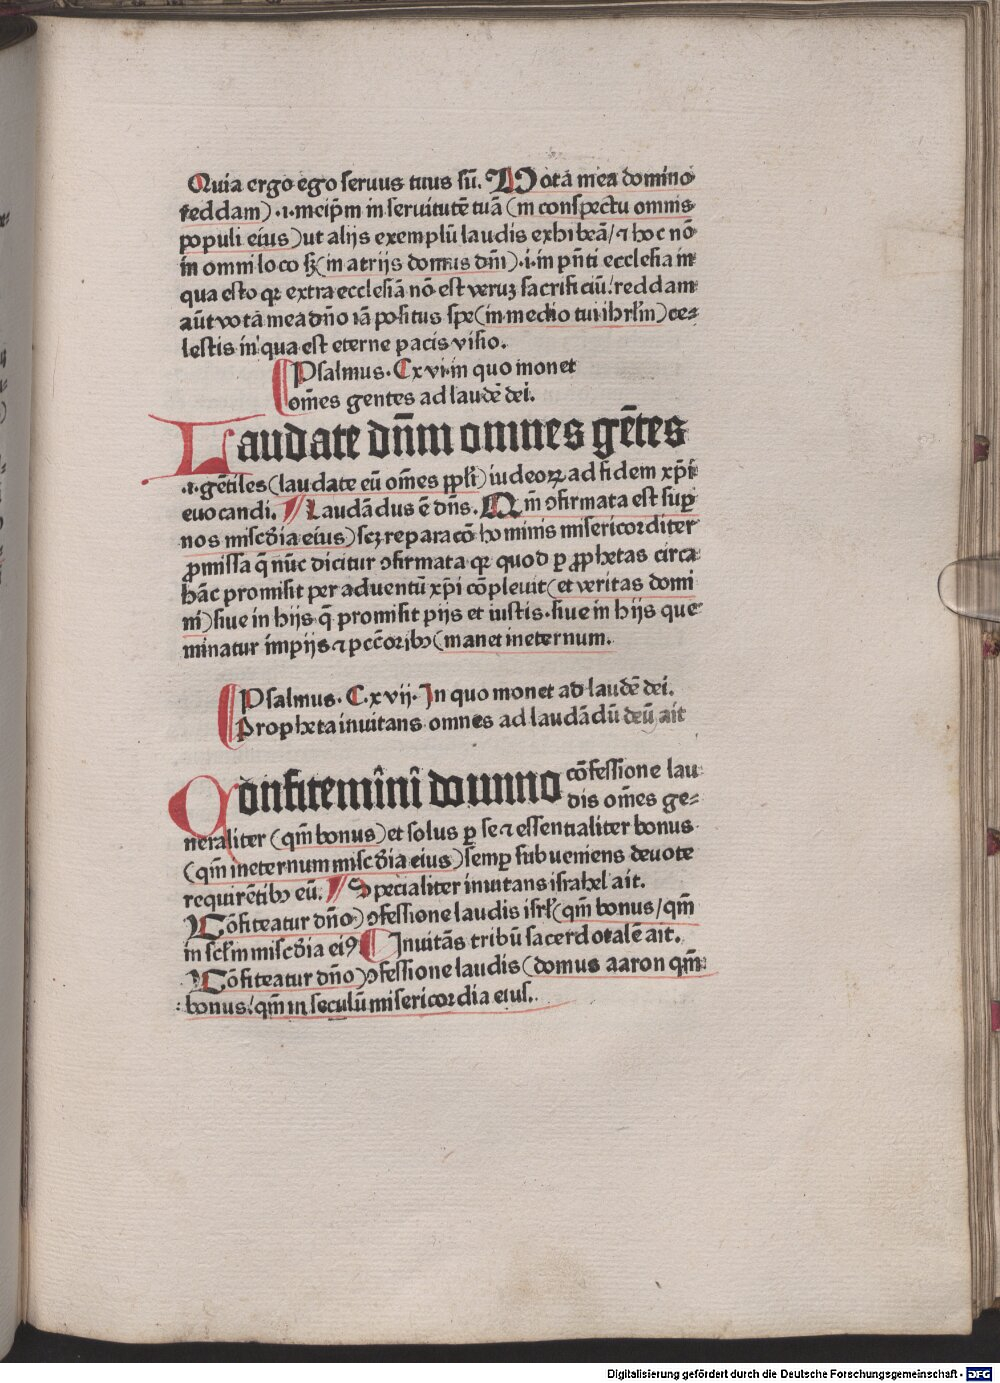 Quia ergo ego seruus tuus sū. Uota mea domino
reddam) .i. incip̄m in seruitutē tuā (in conspectu omnis
populi eius) ut alijs exemplū laudis exhibeā / ⁊ hoc nō
in omni loco sʒ (in atrijs domus dn̄i) .i. in pn̄ti ecclesia in
qua esto qꝛ extra ecclesiā nō est veruʒ sacrificiū / reddam
aūt vota mea dn̄o iā positus spe (in medio tui ihrl̄m) ce⸗
lestis in qua est eterne pacis visio.
Psalmus. Cxvi. in quo monet
om̄es gentes ad laudē dei.
Laudate dn̄m omnes gētes
.i. gētiles (laudate eū om̄es ppl̄i) iudeoꝝ ad fidem xp̄i
euocandi. Laudādus ē dn̄s. Qm̄ ↄfirmata est suꝑ
nos misc̄dia eius) scʒ reparacō hominis misericorditer
ꝓmissa q̄ nūc dicitur ↄfirmata qꝛ quod ꝑ ꝓphetas circa
hāc promisit per aduentū xp̄i cōpleuit (et veritas domi
ni) siue in hijs q̄ promisit pijs et iustis. siue in hijs que
minatur impijs ⁊ pccōribꝰ (manet in eternum.
Psalmus. C.xvij. In quo monet ad laudē dei.
Propheta inuitans omnes ad laudādū deū ait
Confitemini domino cōfessione lau
dis om̄es ge⸗
neraliter (qm̄ bonus) et solus ꝑ se ⁊ essentialiter bonus
(qm̄ in eternum misc̄dia eius) semꝑ subueniens deuote
requirētibꝰ eū. Specialiter inuitans israhel ait.
Cōfiteatur dn̄o) ↄfessione laudis isrl̄ (qm̄ bonus / qm̄
in scl̄m misc̄dia eiꝰ Inuitās tribū sacerdotalē ait.
Cōfiteatur dn̄o) ↄfessione laudis (domus aaron qm̄
bonus / qm̄ in seculū misericordia eius.
Digitalisierung gefördert durch die Deutsche Forschungsgemeinschaft - DFG